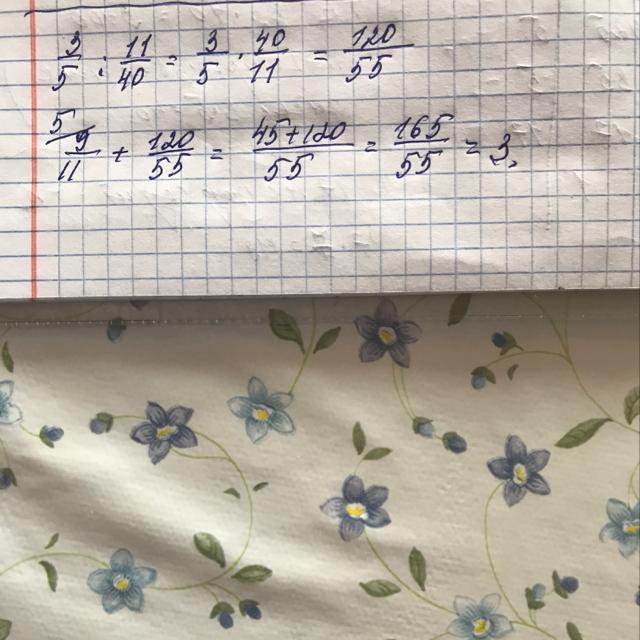 3/5 : 11/40 = 3/5 · 40/11 = 120/55
5 9/11 + 120/55 = 45+120/55 = 165/55 = 3,